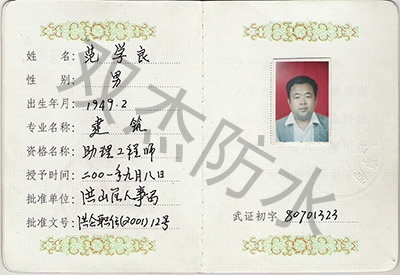 姓名：范学良
性别：男
出生年月：1949.2
专业名称：建筑
资格名称：助理工程师
授予时间：二00一年九月八日
批准单位：洪山区人事局
批准文号：洪企职信(2001)12号
武证初字 80701323
双杰防水